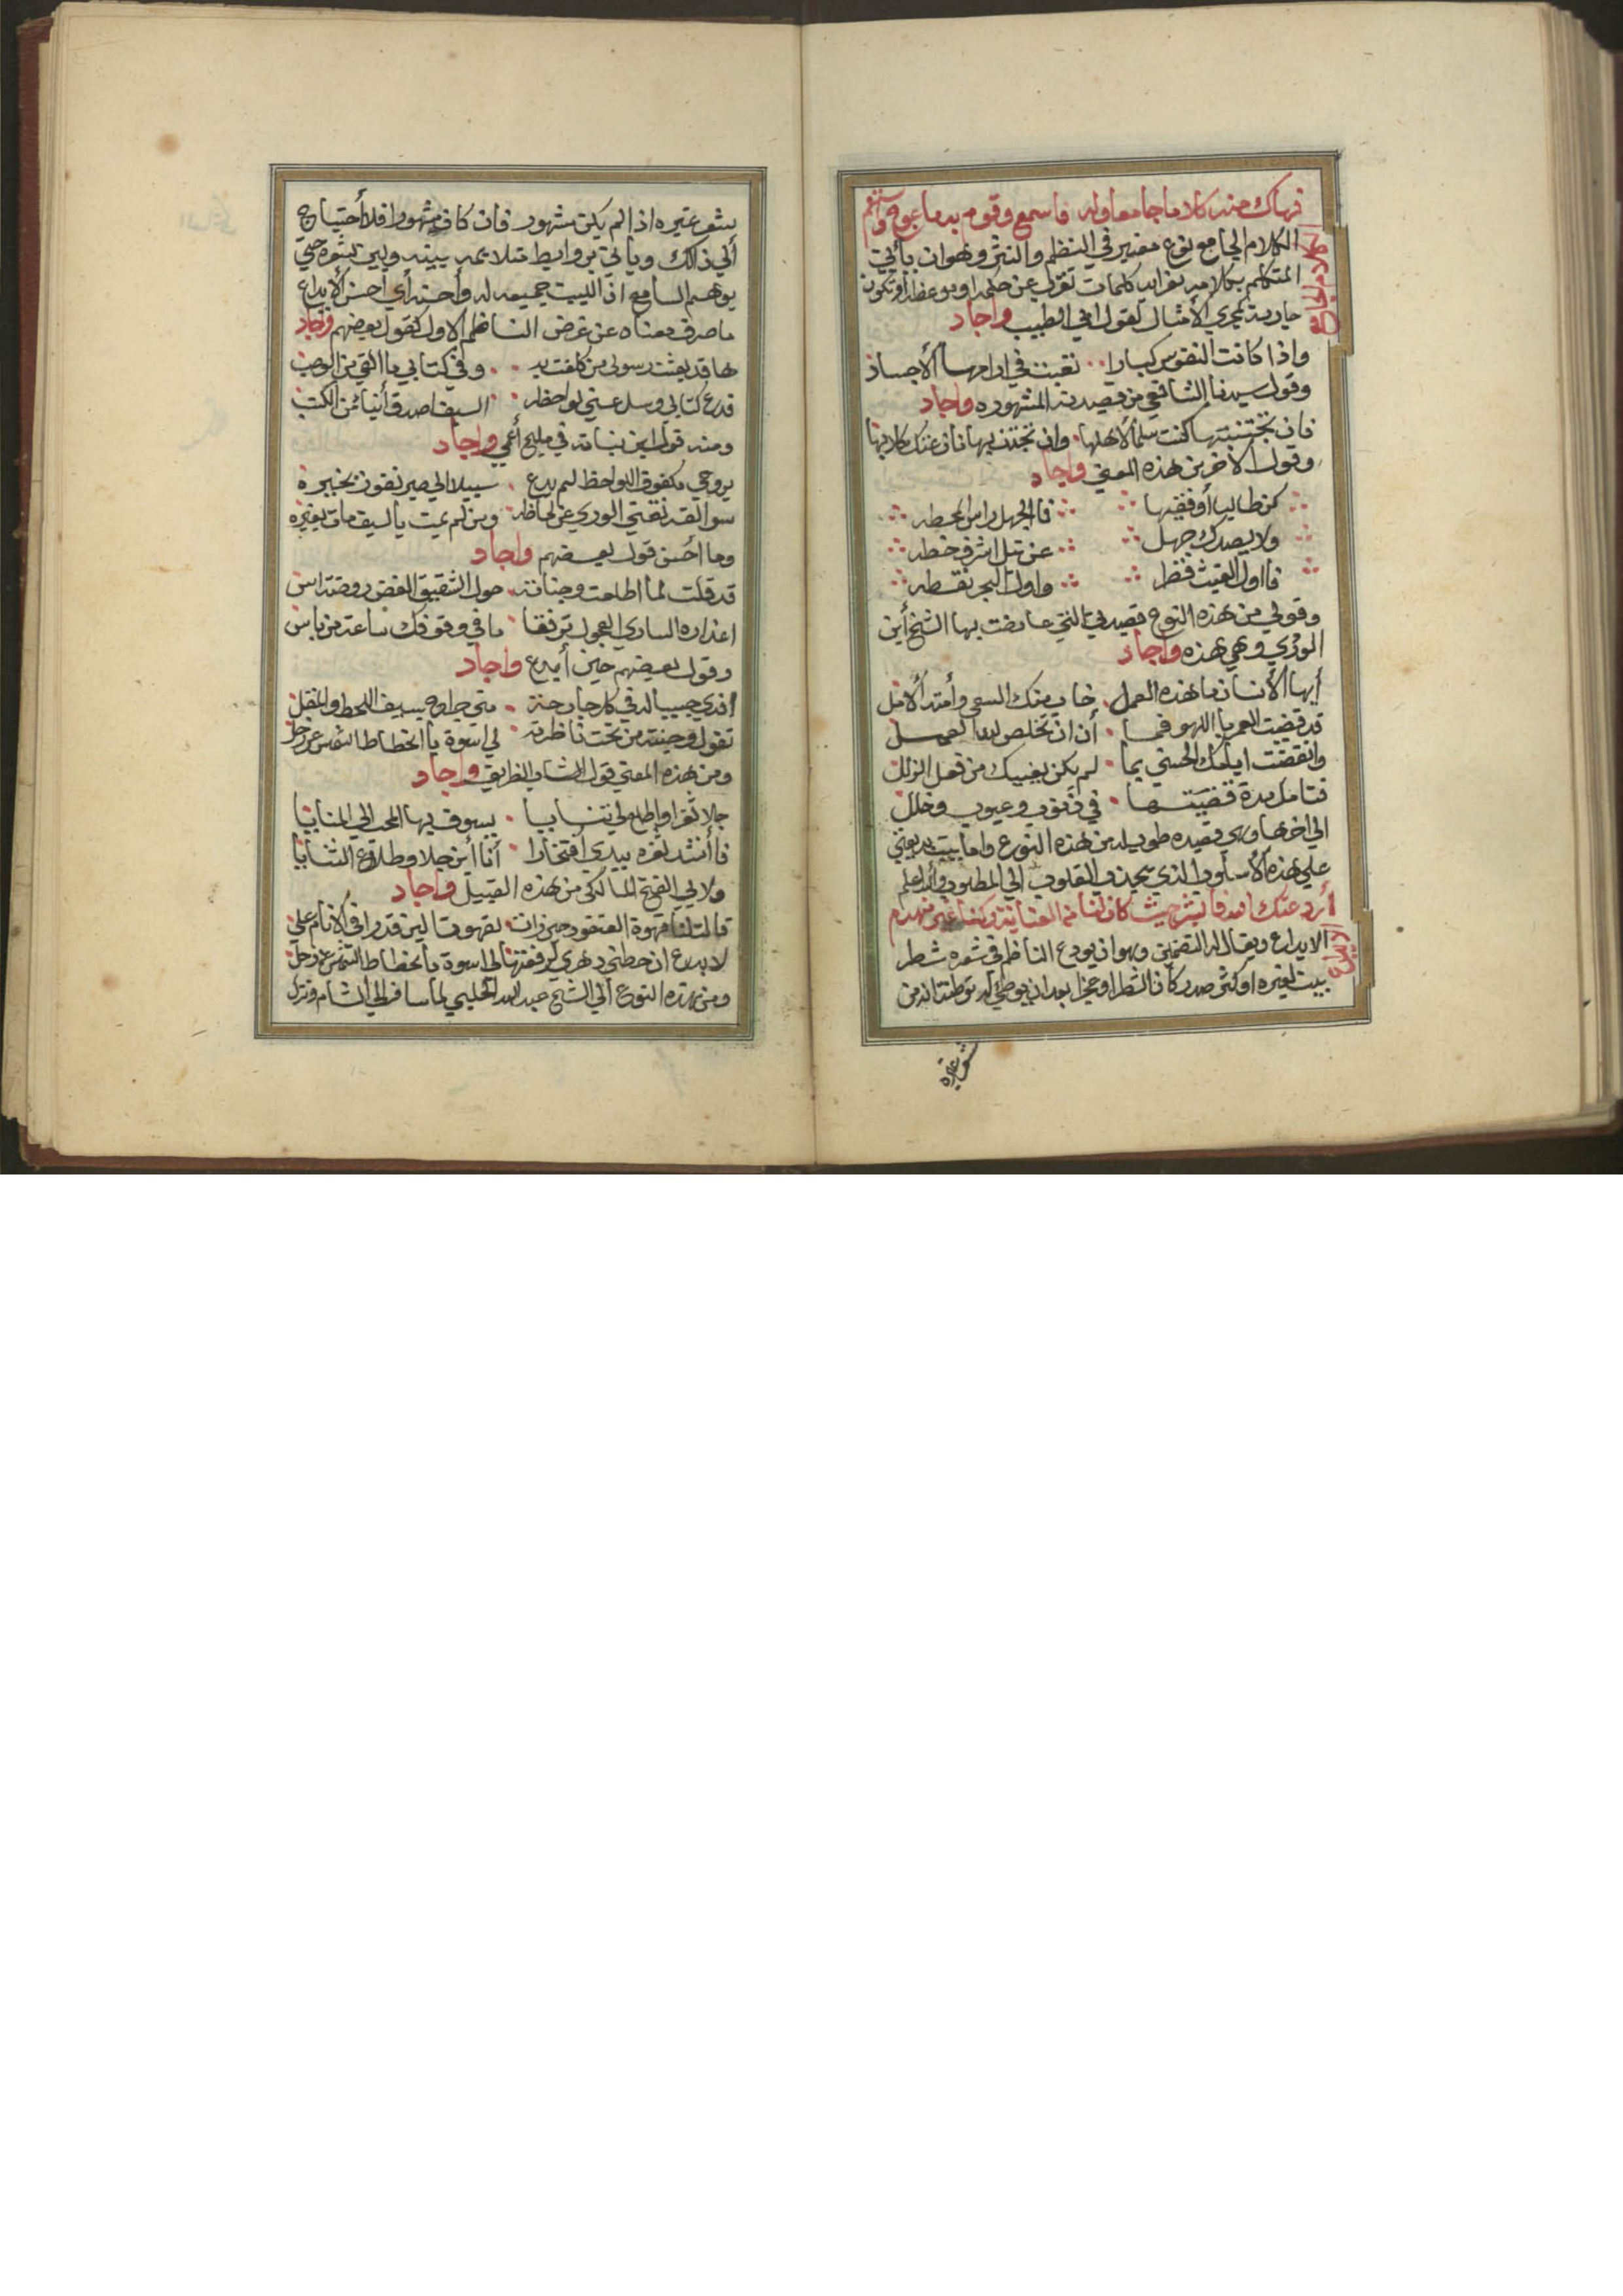 فهاك منه كلاما جامعا وله فاسمع وقوم به ما عوج واستقم
الكلام الجامع
الكلام الجامع نوع مفيد في النظم والنثر وهوان يأتي
المتكلم بكلام كلمات عن حكمة او موعظة أو تكون
جارية مجري الأمثال كقول ابي الطيب واجاد
واذا كانت النفوس كبارا تعبت في مرامها الأجساد
وقول سيدنا الشافعي من قصيدته المشهوره واجاد
فان تجتنبتها كنت سلما لأهلها وان تجتذبها نازعتك كلابها
وقول الاخر من هذه المعني واجاد
كن طالبا أو فقيها فالجهل راس المحطه
ولا يصدك جهل عن نيل اشرف خطه
فاول الغيث قطر واول البحر نقطه
وقولي من هذه النوع قصيدتي التي عارضت بها الشيخ أبن
الوردي وهي هذه واجاد
أيها الأنسان ما هذه العمل خاب منك السعي وأمتد ألامل
قد قضيت العمر باللهو فما أن ان تخلص لله العمل
وانقضت ايامك الحسني بما لم يكن يغنيك من فعل الزلل
فتامل مدة قضيتها في ذنوب وعيوب وخلل
الي اخرها وهي قصيده طويله من هذه النوع واما بيت بديعتي
علي هذه الأسلوب الذي يجذب القلوب الي المطلوب والله اعلم
الايداع
الايداع ويقال له التضمين وهوان يودع الناظم في شعره شطر
بيت لغيره او كثر صدرا كان الشطر او عجزا بعد ان يوطي له توطئة انه من
شعر غيره
بشعر غيره اذا لم يكن مشهور فان كان مشهورا فلا أحتياج
ألي ذالك ويأتي بروابط متلائمه بينه وبين شعره حتي
يوهم السامع ان البيت جميعه له وأحسنه أي أحسن ألأيداع
ما صرف معناه عن غرض الناظم الاول كقول بعضهم واجاد
ها قد بعثت رسولي من كلفت به وفي كتابي ما القي من الوصب
فدع كتابي وسل عني لواحظه السيف اصدق أنباء من الكتب
ومنه قول ابن نباته في مليح أعمي واجاد
بروحي مكفوف اللواحظ لم يدع سبيلا الي صبر يفوز بخيره
سوالفه تغني الوري عن لحاظه ومن لم يمت بالسيف مات بغيره
وما أحسن قول بعضهم واجاد
قد قلت لما اطلعت وجناته حول الشقيق الغض روضة اس
اعذاره الساري العجول ترفقا ما في وقوفك ساعة من باس
وقول بعضهم حين أبدع واجاد
افدي حبيبا له في كل جارحة مني جراح بسيف اللحظ والمقل
تقول وجنته من تحت ناظرته لي اسوة بانحطاط الشمس عن زحل
ومن هذه المعني قول الشاب الظريف واجاد
جلا ثغرا واطلع لي ثنايا يسوق بها المحب الي المنايا
فأنشد ثغره يبدي أفتخارا أنا أبن جلا وطلاع الثنايا
ولابي الفتح المالكي من هذه القبيل واجاد
قالت لنا قهوة العنقود حين زات لقهوة البن قدرا في الانام علي
لا بدع ان حطني دهري لرفعتها لي اسوة بانحطاط الشمس عن زحل
ومن هذه النوع الي الشيخ عبد الله الحلبي لما سافر الي الشام ونزل